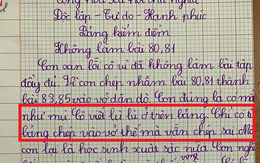 Cộng hòa xã hội chủ nghĩa
Độc lập - Tự do - Hạnh phúc
Bảng kiểm điểm
Không làm bài 80, 81
Con xan lỗi cô vì đã không làm bài tập
đầy đủ. Vì con chép nhầm bài 80, 81 thành
bài 83, 85 vào vở dặn dò. Con đúng là có mắt
như mù. Cô viết lù lù ở trên bảng. Chỉ có từ
bảng chép vào vở thế mà vẫn chép sai. Mà
con lại là học sinh xuất sắc nữa. Con